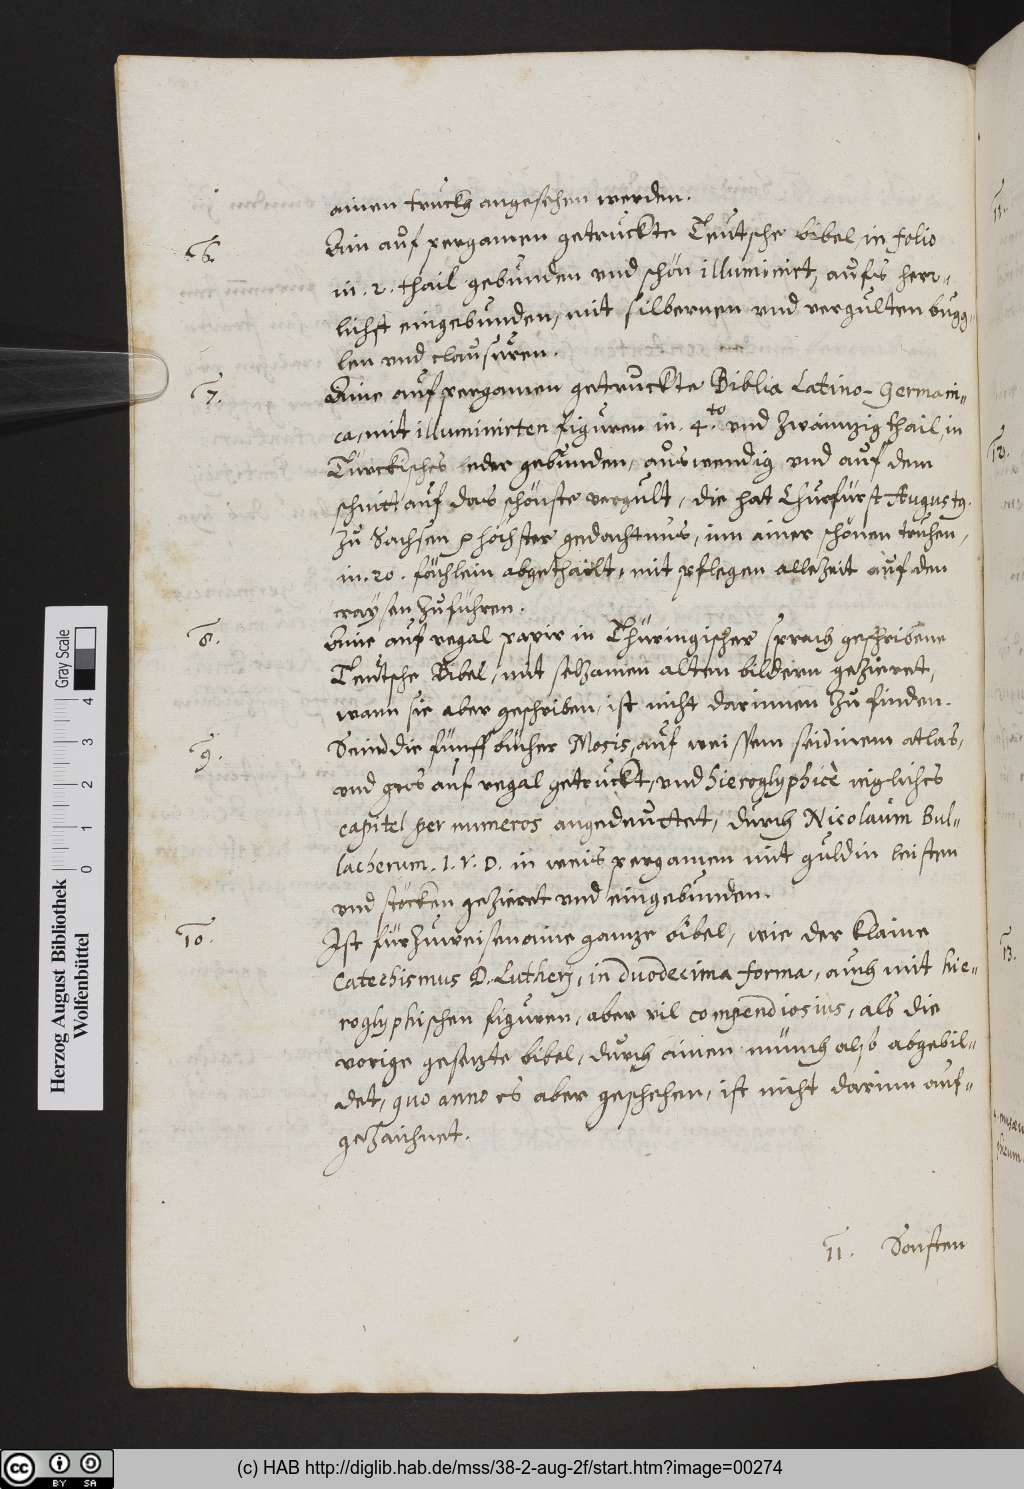 ainen truckh angesehen werden.
6. Ein auf pergamen getruckte Teutsche bibel, in folio
in .2. thail gebunden vnd schön illuminirt, aufs herr-
lichst eingebunden, mit silbernen vnd vergulten bugg-
len vnd clausuren.
7. Eine auf pergamen getruckte Biblia Latino-Germani-
ca, mit illuminirten figuren in .4.to vnd zwainzig thail, in
Türckisches leder gebunden, auswendig vnd auf dem
schnitt auf das schönste vergult, die hat Churfürst Augustg.
zu Sachsen höchster gedachtnus, inn ainer schönen truhen,
in .20. fächlein abgethailt, mit pflegen allezeit auf den
craÿsen zuführen.
8. Eine auf regal papir in Thüringischer sprach geschribene
Teutsche Bibel, mit selzamen alten bildern gezieret,
wann sie aber geschriben, ist nicht darinnen zu finden.
9. Seind die fünff bücher Mosis, auf weissem seidinem atlas,
vnd gros auf regal getruckt, vnd hieroglyphicè iegliches
capitel per numeros angedeuttet, durch Nicolaum Bul-
lacherum. I.V.D. in weis pergamen mit guldin leisten
vnd stöcken gezieret vnd eingebunden.
10. Ist fürzuweisen aine ganze bibel, wie der klaine
Catechismus D. Lutherj, in duodecima forma, auch mit hie-
roglyphischen figuren, aber vil compendiosius, als die
vorige gesetzte bibel, durch ainen münch also abgebil-
det, quo anno es aber geschehen, ist nicht darinn auf-
gezaichnet.
11. Sonsten
11.
12.
13.
Herzog August Bibliothek
Wolfenbüttel
0 1 2 3 4
Gray Scale
cc BY SA
(c) HAB http://diglib.hab.de/mss/38-2-aug-2f/start.htm?image=00274